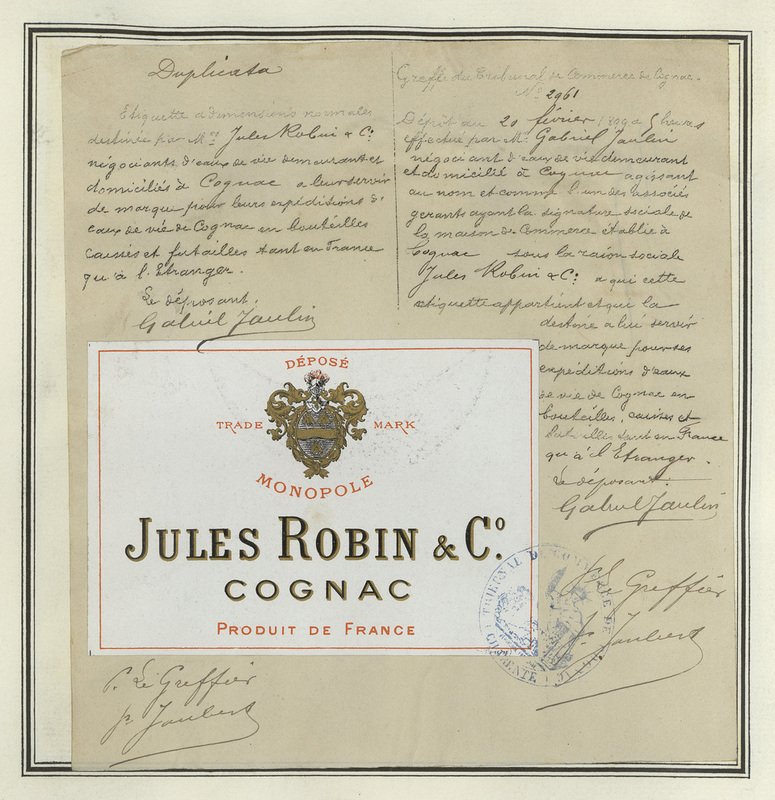 Duplicata
Etiquette a dimensions normales
destinée par Mrs Jules Robin & Co
négociants d'eaux de vie demeurant et
domiciliés à Cognac a leur servir
de marque pour leurs expéditions d'
eaux de vie de Cognac en bouteilles
caisses et futailles tant en France
qu'à l'Etranger.
Le déposant.
Gabriel Jaulin
Greffe du Tribunal de Commerce de Cognac.
No 2961
Dépôt au 20 février à 5 heures
effectué par Mr Gabriel Jaulin
négociant d'eaux de vie demeurant
et domicilié à Cognac agissant
au nom et comme l'un des associés
gerants ayant la signature sociale de
la maison de Commerce établie à
Cognac sous la raison sociale
Jules Robin & Co a qui cette
etiquette appartient et qui la
destine a lui servir
de marque pour ses
expéditions d'eaux
de vie de Cognac en
bouteilles, caisses et
futailles tant en France
qu'à l'Etranger.
Le déposant.
Gabriel Jaulin
DÉPOSÉ
TRADE MARK
MONOPOLE
JULES ROBIN & Co.
COGNAC
PRODUIT DE FRANCE
TRIBUNAL DE COMMERCE DE
CHARENTE
P. Le Greffier
Joubert
P. Le Greffier
Joubert